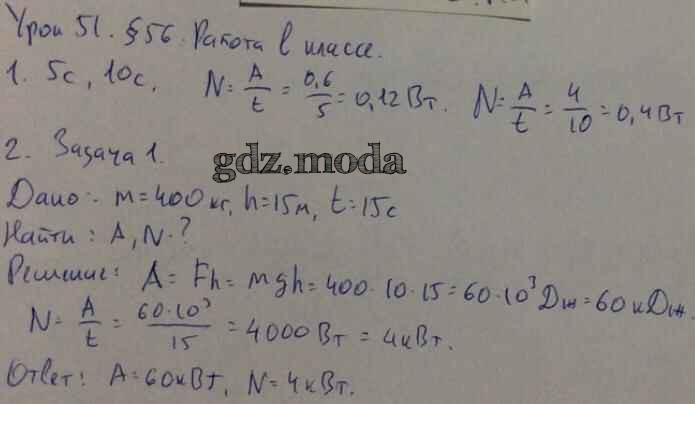 Урок 51. §56. Работа в классе.
1. 5с, 10с. N = A/t = 0,6/5 = 0,12 Вт. N = A/t = 4/10 = 0,4 Вт
2. Задача 1.
gdz.moda
Дано: m = 400 кг, h = 15 м, t = 15 с
Найти: A, N - ?
Решение: A = Fh = mgh = 400 · 10 · 15 = 60 · 10³ Дж = 60 кДж.
N = A/t = 60 · 10³/15 = 4000 Вт = 4 кВт.
Ответ: A = 60 кВт, N = 4 кВт.